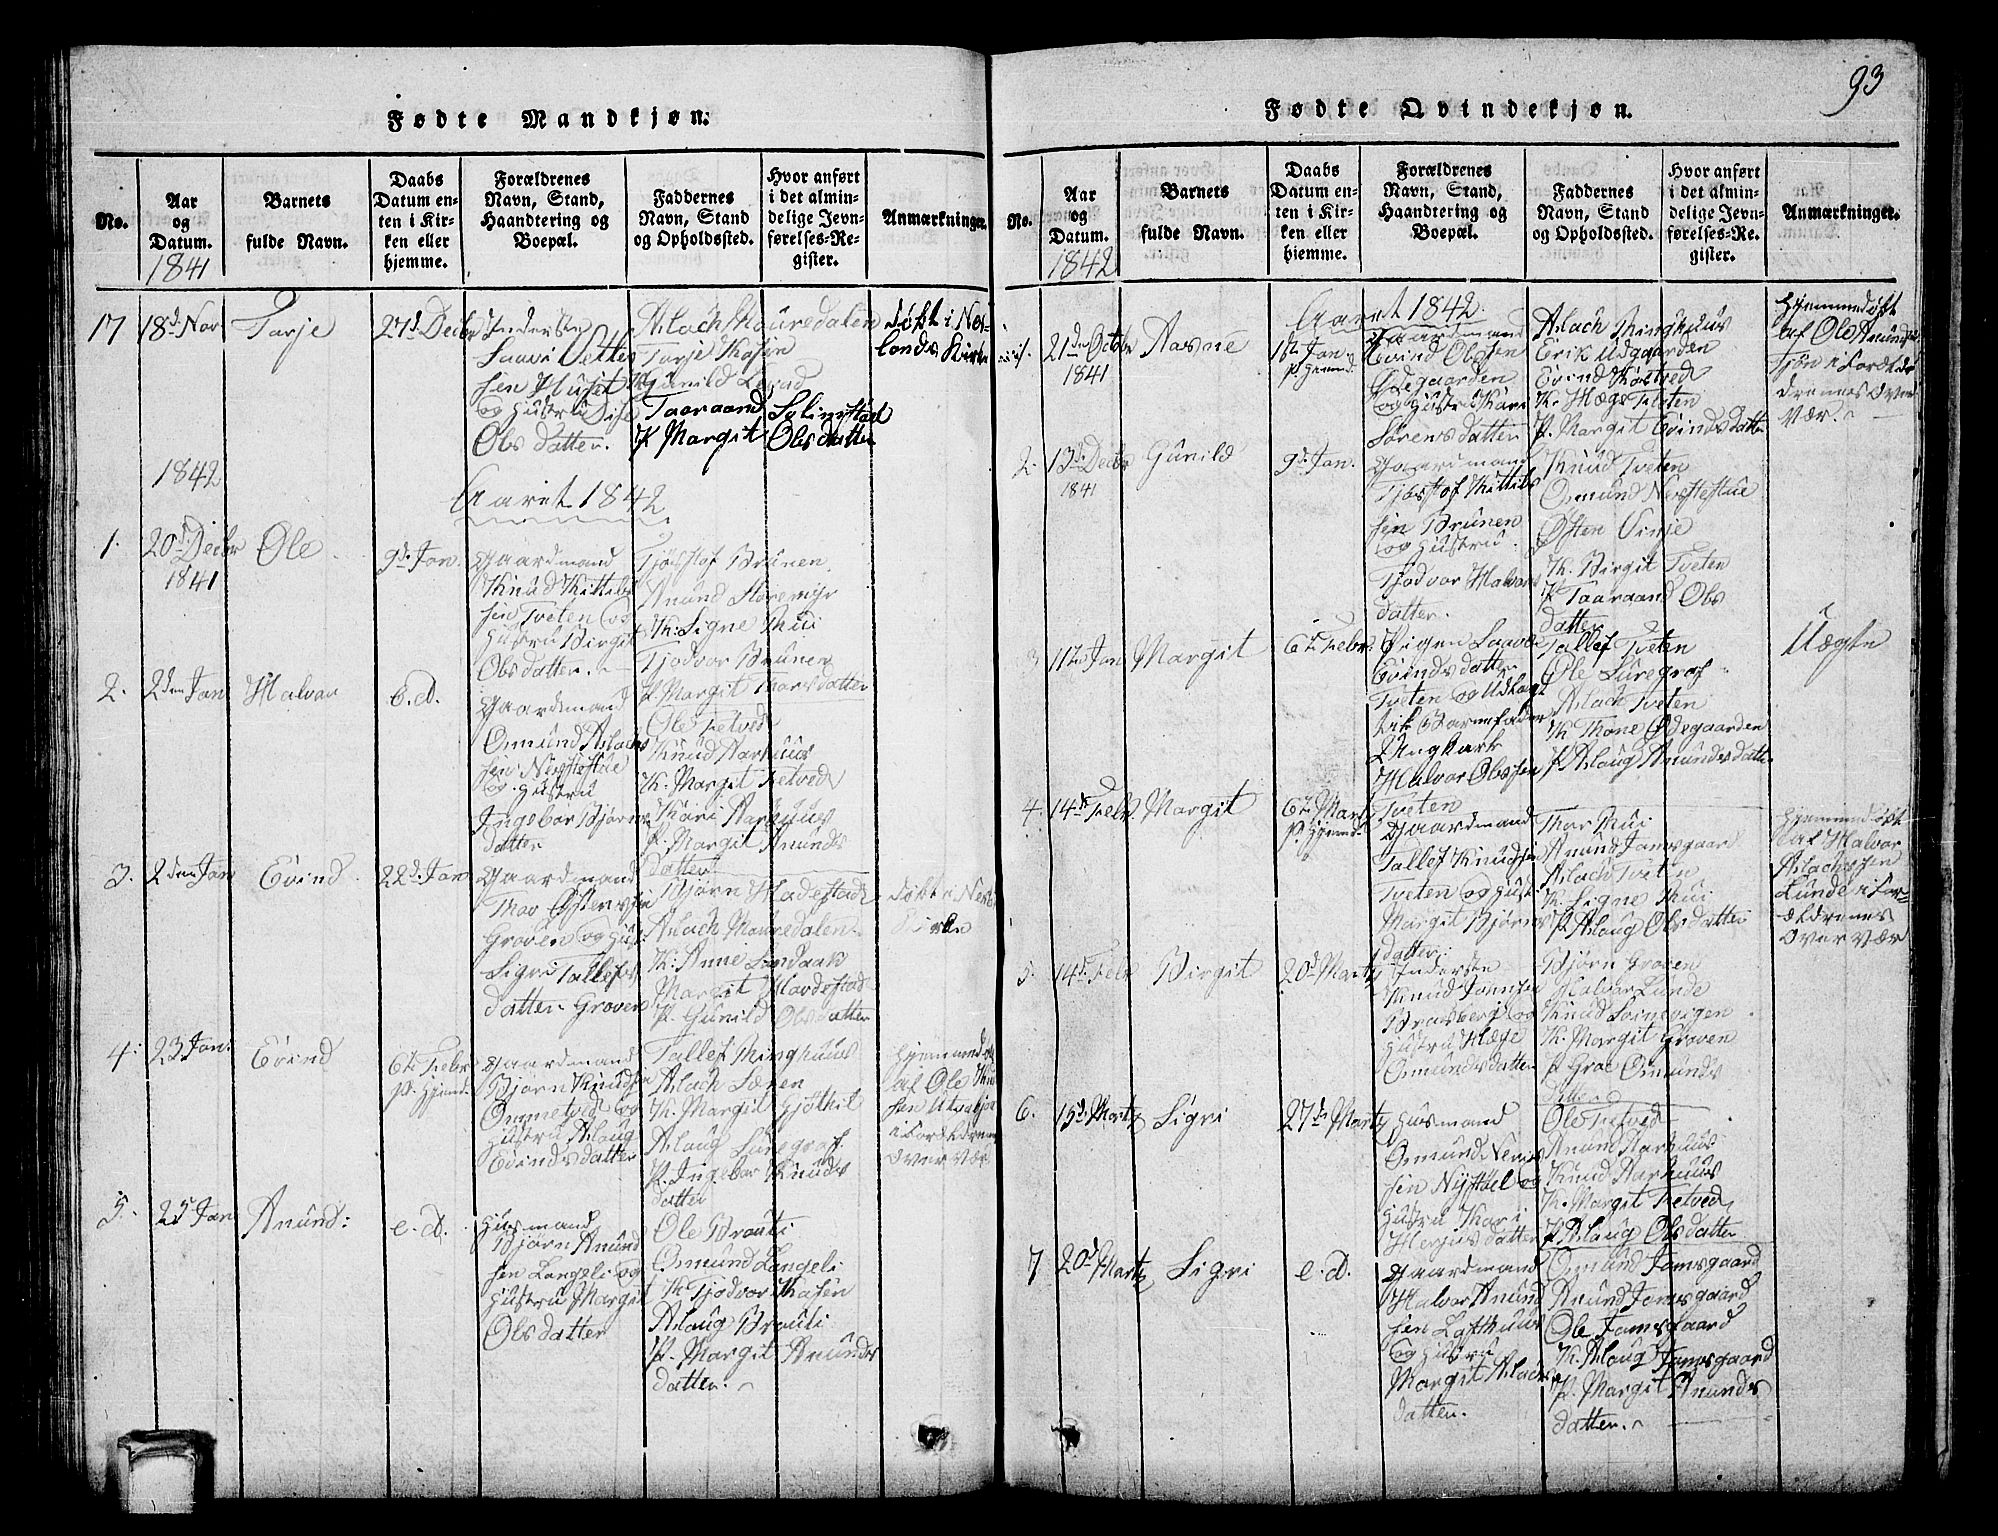 93
Fødte Mandkjøn.
No.
Aar
og
Datum.
1841
Barnets
fulde Navn.
Daabs
Datum en-
ten i Kir-
ken eller
hjemme.
Forældrenes
Navn, Stand,
Haandtering og
Boepæl.
Faddernes
Navn, Stand
og Opholdssted.
Hvor anført
i det almin-
delige Jevn-
førelses-Re-
gister.
Anmærkninger.
17
18d. Nov
Tarje
27d Decbr
Inderste
og Hustru
Ols datter.
Aslach Mouredalen
Tarje Kasin
Taaraand Selingstad
P. Margit Ols datter
Døbt i Nes-
lands Kirke
1842
Aaret 1842
1.
20d Decbr
1841
Ole
9d. Jan.
Gaardmand
Knud Kittils
sen Tveten og
Hustru Birgit
Ols datter.
Tjøstof Brünen
Anund Støremyr
K. Signe Thui
Tjodvor Brünen
P. Margit Thorsdatter
2.
2den Jan
Halvor
e. d.
Gaardmand
Osmund Aslachs
sen Nerstestue
og Hustru
Ingebor Bjørns
datter
Ole Tretved
Knud Aarhuus
K. Margit Tretved
Kari Aarhuus
P. Margit Anunds
datter
3.
2den Jan
Evind
22d. Jan
Gaardmand
Thor Østensen
Groven og Hust.
Sigri Tallefs
datter Groven
Bjørn Hadestad
Aslach Mouredalen
K. Anne Landaak
Margit Hardestad
P. Gunild Olsdatter
Døbt i Nesl.
Kirke
4.
23 Jan.
Evind
6te Febr
p. Hjemd.
Gaardmand
Bjørn Knudsen
Ommetved og
Hustru Aslaug
Evindsdatter
Tallef Minghuus
Aslach Særen
K. Margit Gjøthit
Aslaug Suregraf
P. Ingebor Knuds
datter
Hjemmedøbt
af Ole Knud
i Forældrenes
Overvær
5.
25 Jan
Anund
e. d.
Husmand
Bjørn Anund
sen Langeli og
Hustru Margit
Olsdatter
Ole Brouti
Osmund Langeli
K. Tjodvor Kasin
Aslaug Brouti
P. Margit Anunds
datter.
Fødte Qvindekjøn.
No.
Aar
og
Datum.
1842
Barnets
fulde Navn.
Daabs
Datum en-
ten i Kir-
ken eller
hjemme.
Forældrenes
Navn, Stand,
Haandtering og
Boepæl.
Faddernes
Navn, Stand
og Opholdssted.
Hvor anført
i det almin-
delige Jevn-
førelses-Re-
gister.
Anmærkninger.
Aaret 1842
21den Octobr
1841
Aasne
1ste Jan.
p. Hjemd.
Gaardmand
Evind Olssen
Ødegaarden
og Hustru Kari
Sørens datter
Aslach Minghuus
Erik Udgaarden
Evind Kostved
K. Hæge Tveten
P. Margit Evinds datter
Hjemmedøbt
af Ole Anunds
Tjøn i Foræl-
drenes Over-
vær.
2.
13d Decbr
1841
Gunild
9d Jan.
Gaardmand
Tjøstof Kittils
sen Brünen
og Hustru
Tjodvor Halvors
datter.
Knud Tveten
Osmund Nerstestue
Østen Vinje
K. Birgit Tveten
P. Taaraand Ols
datter
3
11te Jan
Margit
6te Febr
Pigen Laave
Evindsdatter
Tveten og Udlagt
Barnefader
Ungkark
Halvor Olssen
Tveten
Tallef Tveten
Ole Suregraf
Aslach Tveten
K. Tone Ødegaarden
P. Aslaug Anundsdatter
Uægte
4.
14de Febr
Margit
6te Marts
p. Hjemd.
Gaardmand
Tallef Knudsen
Tveten og Hust.
Margit Bjørns
datter
Thor Thui
Anund Jamsgaard
Aslach Tveten
K. Signe Thui
P. Aslaug Olsdatter
Hjemmedøbt
af Halvor
Aslachssen
Lunde i For-
ældrenes
Overvær
5.
14d. Febr
Birgit
20d Marts
Inderste
Knud Jonnsen
Brausberg og
Hustru Hæge
Osmundsdatter
Bjørn Groven
Halvor Lunde
Knud Loinevigen
K. Margit Groven
P. Groe Osmunds
datter
6.
15d. Marts
Sigri
27de Marts
Husmand
Osmund Neris
sen Nystøel og
Hustru Kari
Herjus datter
Ole Tretved
Anund Aarhuus
Knud Aarhuus
K. Margit Tretved
P. Aslaug Olsdatter
7
20d Marts
Sigri
e. d.
Gaardmand
Halvor Anund
sen Lofthuus
og Hustru
Margit Aslachs
datter.
Osmund Jamsgaard
Anund Jamsgaard
Ole Jamsgaard
K. Aslaug Jamsgaard
P. Margit Anunds
datter.